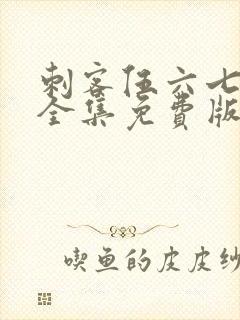 刺客伍六七
全集免费版
喫鱼的皮皮纱